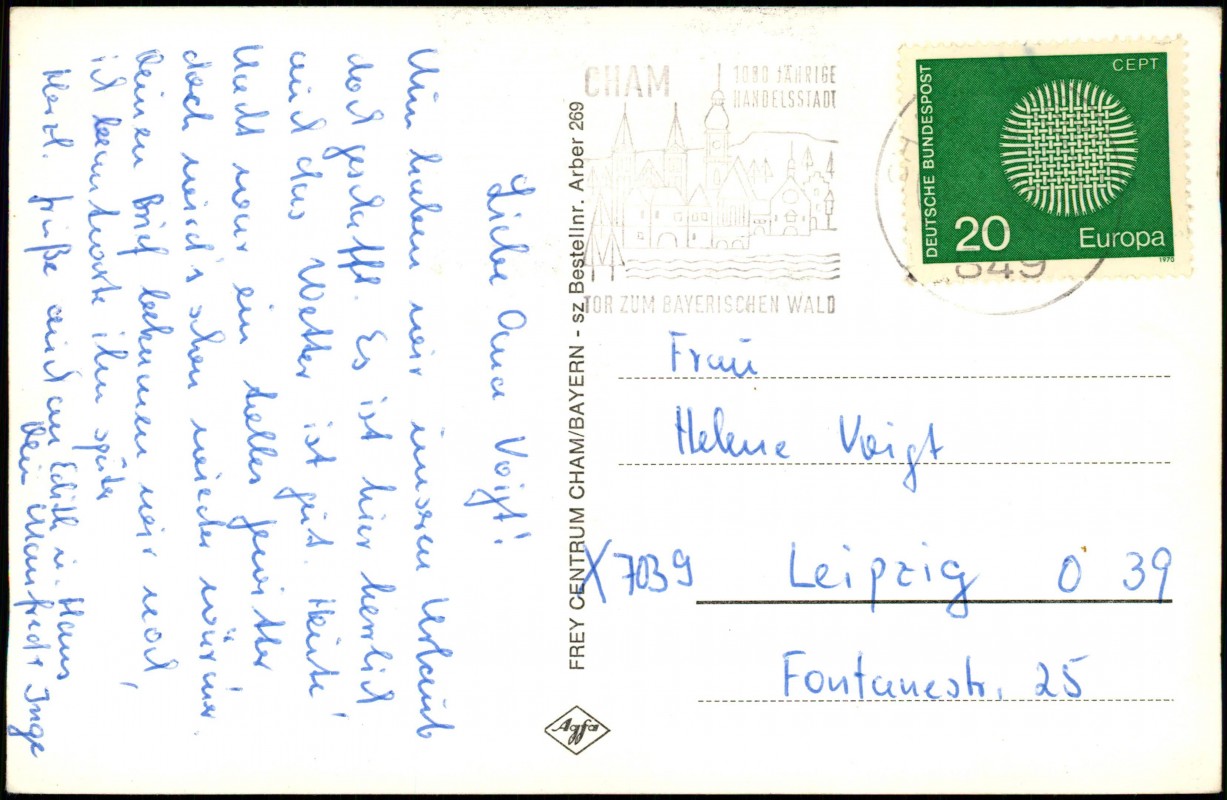 Liebe Oma Voigt!
Nun haben wir unseren Urlaub
doch geschafft. Es ist hier herrlich
und das Wetter ist gut. Heute
Nacht war ein tolles Gewitter
doch wird's schon wieder wärmer.
Deinen Brief bekamen wir noch,
ich beantworte ihn später
Herzl. Grüße auch an Edith u. Hans
Dein Manfred + Inge
FREY CENTRUM CHAM/BAYERN - sz Bestellnr. Arber 269
Agfa
CHAM
1080 JÄHRIGE
HANDELSSTADT
TOR ZUM BAYERISCHEN WALD
849
DEUTSCHE BUNDESPOST
CEPT
20
Europa
1970
Frau
Helene Voigt
X7039 Leipzig O 39
Fontanestr. 25